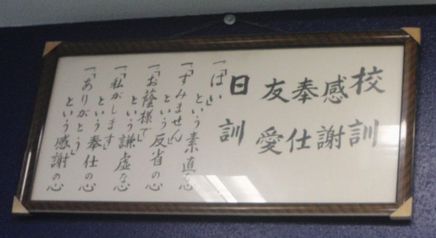 校訓
感謝
奉仕
友愛
日訓
一「はい」という素直な心
一「すみません」という反省の心
一「お蔭様で」という謙虚な心
一「私がします」という奉仕の心
一「ありがとう」という感謝の心